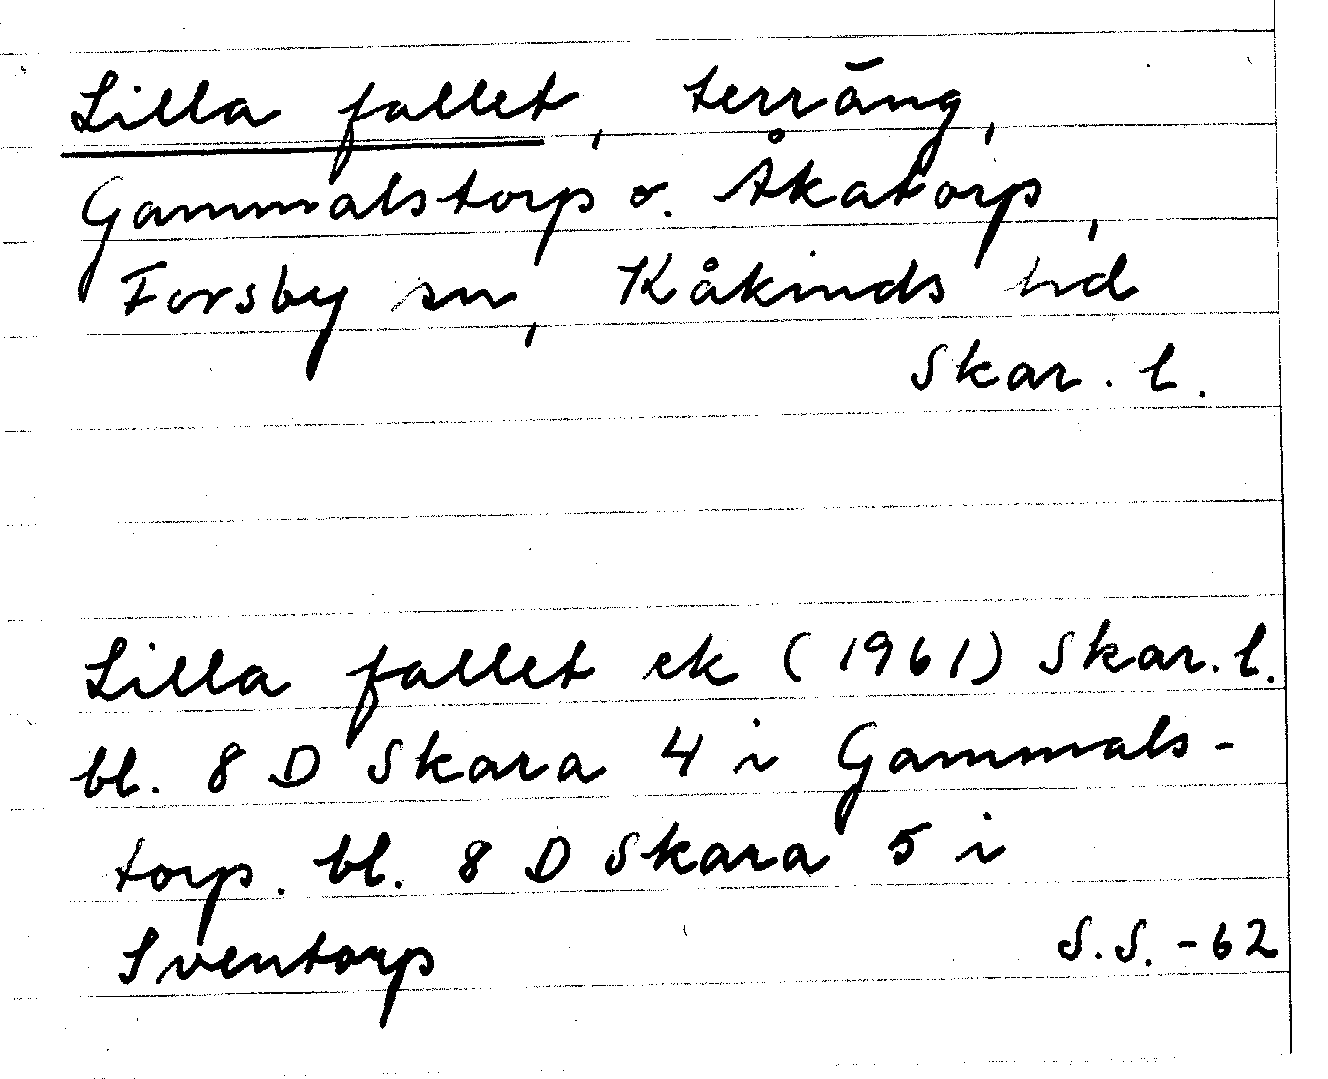 Lilla fallet, terräng,
Gammalstorp o. Åkatorp,
Forsby sn, Kåkinds hd
Skar. l.
Lilla fallet ek (1961) Skar. l.
bl. 8 D Skara 4 i Gammals-
torp. bl. 8 D Skara 5 i
Sventorp S.S. -62